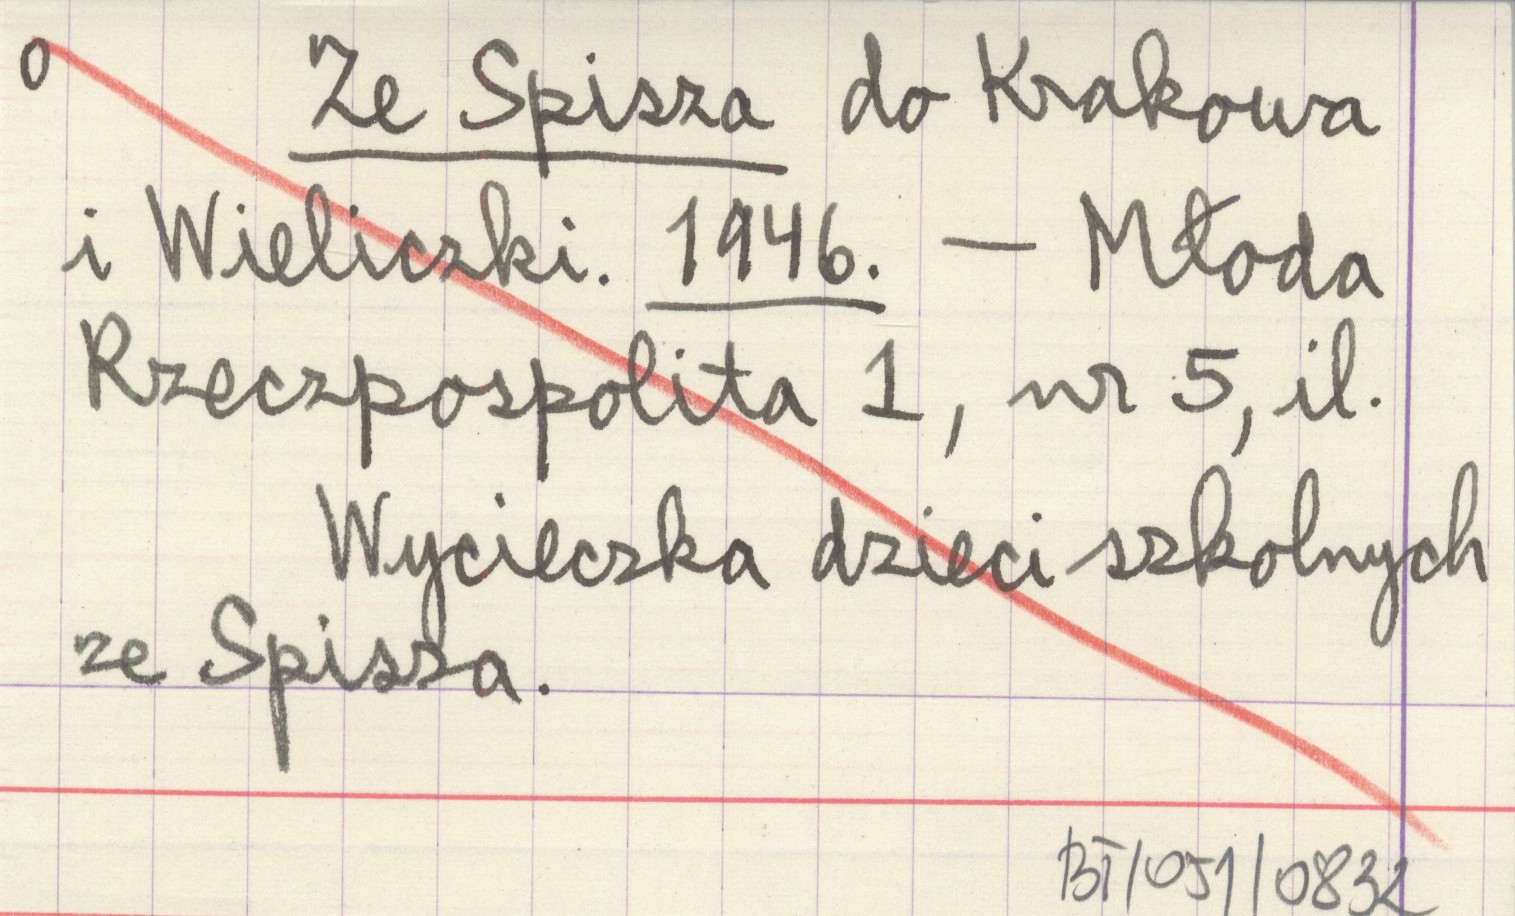 0 Ze Spisza do Krakowa
i Wieliczki. 1946. — Młoda
Rzeczpospolita 1, nr 5, il.
Wycieczka dzieci szkolnych
ze Spisza.
BT/051/0832